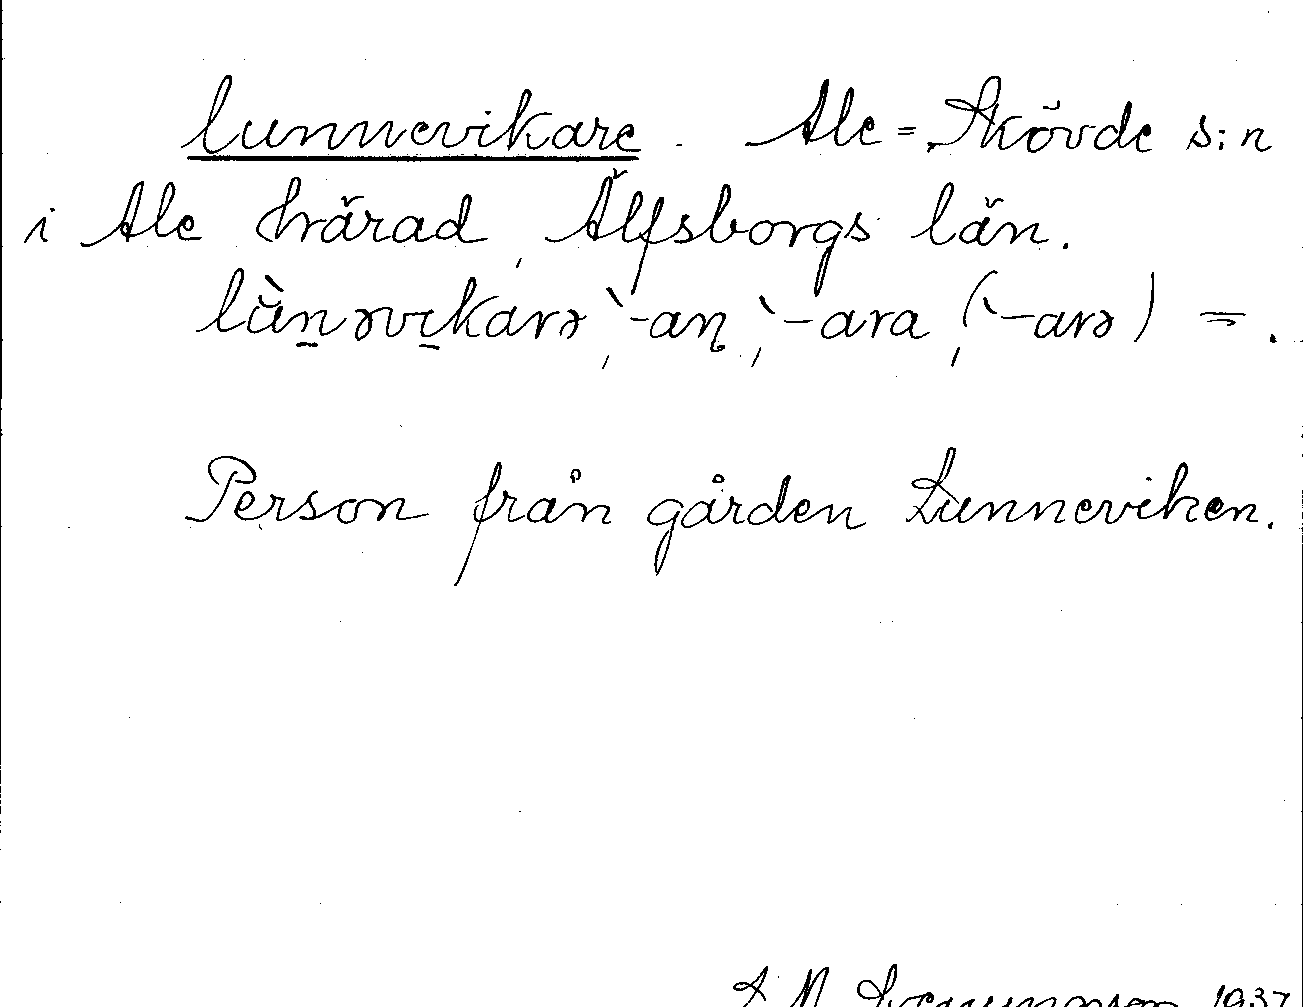 lunnevikare. Ale-Skövde s:n
i Ale härad, Älfsborgs län.
lùn̠əvi̠karə, `-aṇ, `-ara, (`-arə) =.
Person från gården Lunneviken.
1937